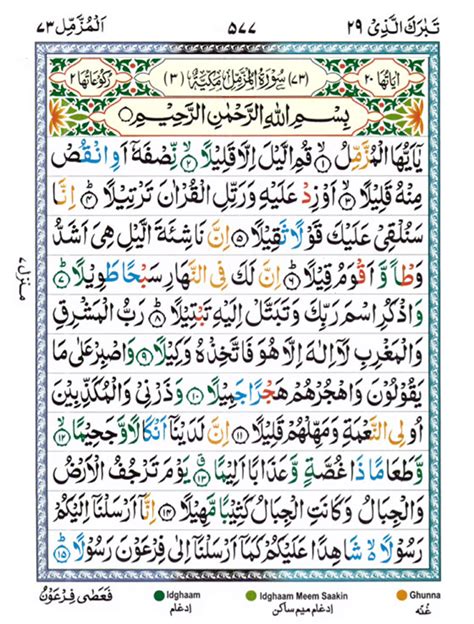 تَبٰرَكَ الَّذِیْ ٢٩ ٥٧٧ اَلْمُزَّمِّل ٧٣
اٰیَاتُهَا ٢٠ (٧٣) سُوْرَةُ الْمُزَّمِّلِ مَكِّیَّةٌ (٣) رُكُوْعَاتُهَا ٢
بِسْمِ اللّٰهِ الرَّحْمٰنِ الرَّحِیْمِ
یٰۤاَیُّهَا الْمُزَّمِّلُ ۝١ قُمِ الَّیْلَ اِلَّا قَلِیْلًا ۝٢ نِّصْفَهٗۤ اَوِ انْقُصْ
مِنْهُ قَلِیْلًا ۝٣ اَوْ زِدْ عَلَیْهِ وَرَتِّلِ الْقُرْاٰنَ تَرْتِیْلًا ۝٤ اِنَّا
سَنُلْقِیْ عَلَیْكَ قَوْلًا ثَقِیْلًا ۝٥ اِنَّ نَاشِئَةَ الَّیْلِ هِیَ اَشَدُّ
وَطْاً وَّاَقْوَمُ قِیْلًا ۝٦ اِنَّ لَكَ فِی النَّهَارِ سَبْحًا طَوِیْلًا ۝٧
وَاذْكُرِ اسْمَ رَبِّكَ وَتَبَتَّلْ اِلَیْهِ تَبْتِیْلًا ۝٨ رَبُّ الْمَشْرِقِ
وَالْمَغْرِبِ لَاۤ اِلٰهَ اِلَّا هُوَ فَاتَّخِذْهُ وَكِیْلًا ۝٩ وَاصْبِرْ عَلٰی مَا
یَقُوْلُوْنَ وَاهْجُرْهُمْ هَجْرًا جَمِیْلًا ۝١٠ وَذَرْنِیْ وَالْمُكَذِّبِیْنَ
اُولِی النَّعْمَةِ وَمَهِّلْهُمْ قَلِیْلًا ۝١١ اِنَّ لَدَیْنَاۤ اَنْكَالًا وَّجَحِیْمًا ۝١٢
وَّطَعَامًا ذَا غُصَّةٍ وَّعَذَابًا اَلِیْمًا ۝١٣ یَوْمَ تَرْجُفُ الْاَرْضُ
وَالْجِبَالُ وَكَانَتِ الْجِبَالُ كَثِیْبًا مَّهِیْلًا ۝١٤ اِنَّاۤ اَرْسَلْنَاۤ اِلَیْكُمْ
رَسُوْلًا شَاهِدًا عَلَیْكُمْ كَمَاۤ اَرْسَلْنَاۤ اِلٰی فِرْعَوْنَ رَسُوْلًا ۝١٥
منزل ٧
فَعَصٰی فِرْعَوْنُ
Idghaam
ادغام
Idghaam Meem Saakin
ادغام میم ساکن
Ghunna
غُنّه